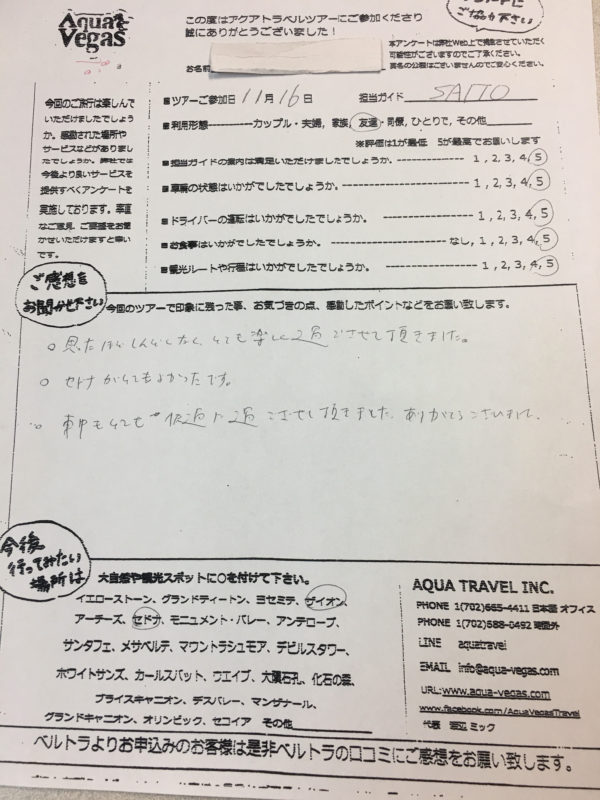 Aqua
Vegas
この度はアクアトラベルツアーにご参加くださり
誠にありがとうございました！
ご協力下さい
本アンケートは弊社Web上で掲載させていただく
可能性がございますのでご了承ください。
実名の公表はございませんのでご安心ください。
お名前
今回のご旅行は楽しんで
いただけましたでしょう
か。感動された場所や
サービスなどがありまし
たでしょうか。弊社では
今後より良いサービスを
提供すべくアンケートを
実施しております。率直
なご意見、ご要望をお聞
かせいただけますと幸い
です。
■ツアーご参加日 11月16日 担当ガイド SAITO
■利用形態----------カップル・夫婦, 家族, 友達・同僚, ひとりで, その他
※評価は1が最低 5が最高でお願いします
■担当ガイドの案内は満足いただけましたでしょうか。---------------- 1, 2, 3, 4, 5
■車輌の状態はいかがでしたでしょうか。---------------- 1, 2, 3, 4, 5
■ドライバーの運転はいかがでしたでしょうか。---------------- 1, 2, 3, 4, 5
■お食事はいかがでしたでしょうか。---------------- なし, 1, 2, 3, 4, 5
■観光ルートや行程はいかがでしたでしょうか。---------------- 1, 2, 3, 4, 5
ご感想を
お聞かせ下さい
今回のツアーで印象に残った事、お気づきの点、感動したポイントなどをお願い致します。
○ 思ったほどしんどくなく、とても楽しく過ごさせて頂きました。
○ セドナがとてもよかったです。
○ 車中もとても快適に過ごさせて頂きました。ありがとうございました。
今後
行ってみたい
場所は
大自然や観光スポットに○を付けて下さい。
イエローストーン、グランドティートン、ヨセミテ、ザイオン、
アーチーズ、セドナ、モニュメント・バレー、アンテロープ、
サンタフェ、メサベルデ、マウントラシュモア、デビルスタワー、
ホワイトサンズ、カールスバット、ウエイブ、大隕石孔、化石の森、
ブライスキャニオン、デスバレー、マンザナール、
グランドキャニオン、オリンピック、セコイア その他
AQUA TRAVEL INC.
PHONE 1(702)665-4411 日本語 オフィス
PHONE 1(702)588-0492 時間外
LINE aquatravel
EMAIL info@aqua-vegas.com
URL:www.aqua-vegas.com
www.facebook.com/AquaVegasTravel
代表 渡辺 ミック
ベルトラよりお申込みのお客様は是非ベルトラの口コミにご感想をお願い致します。